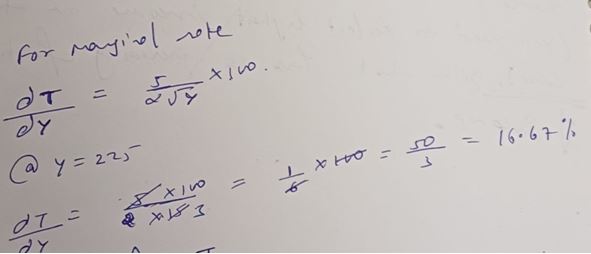 For marginal rate
dT/dY = 5/2√Y ×100.
@ Y = 225
dT/dY = 5×100/2×15 3 = 1/6 ×100 = 50/3 = 16.67%